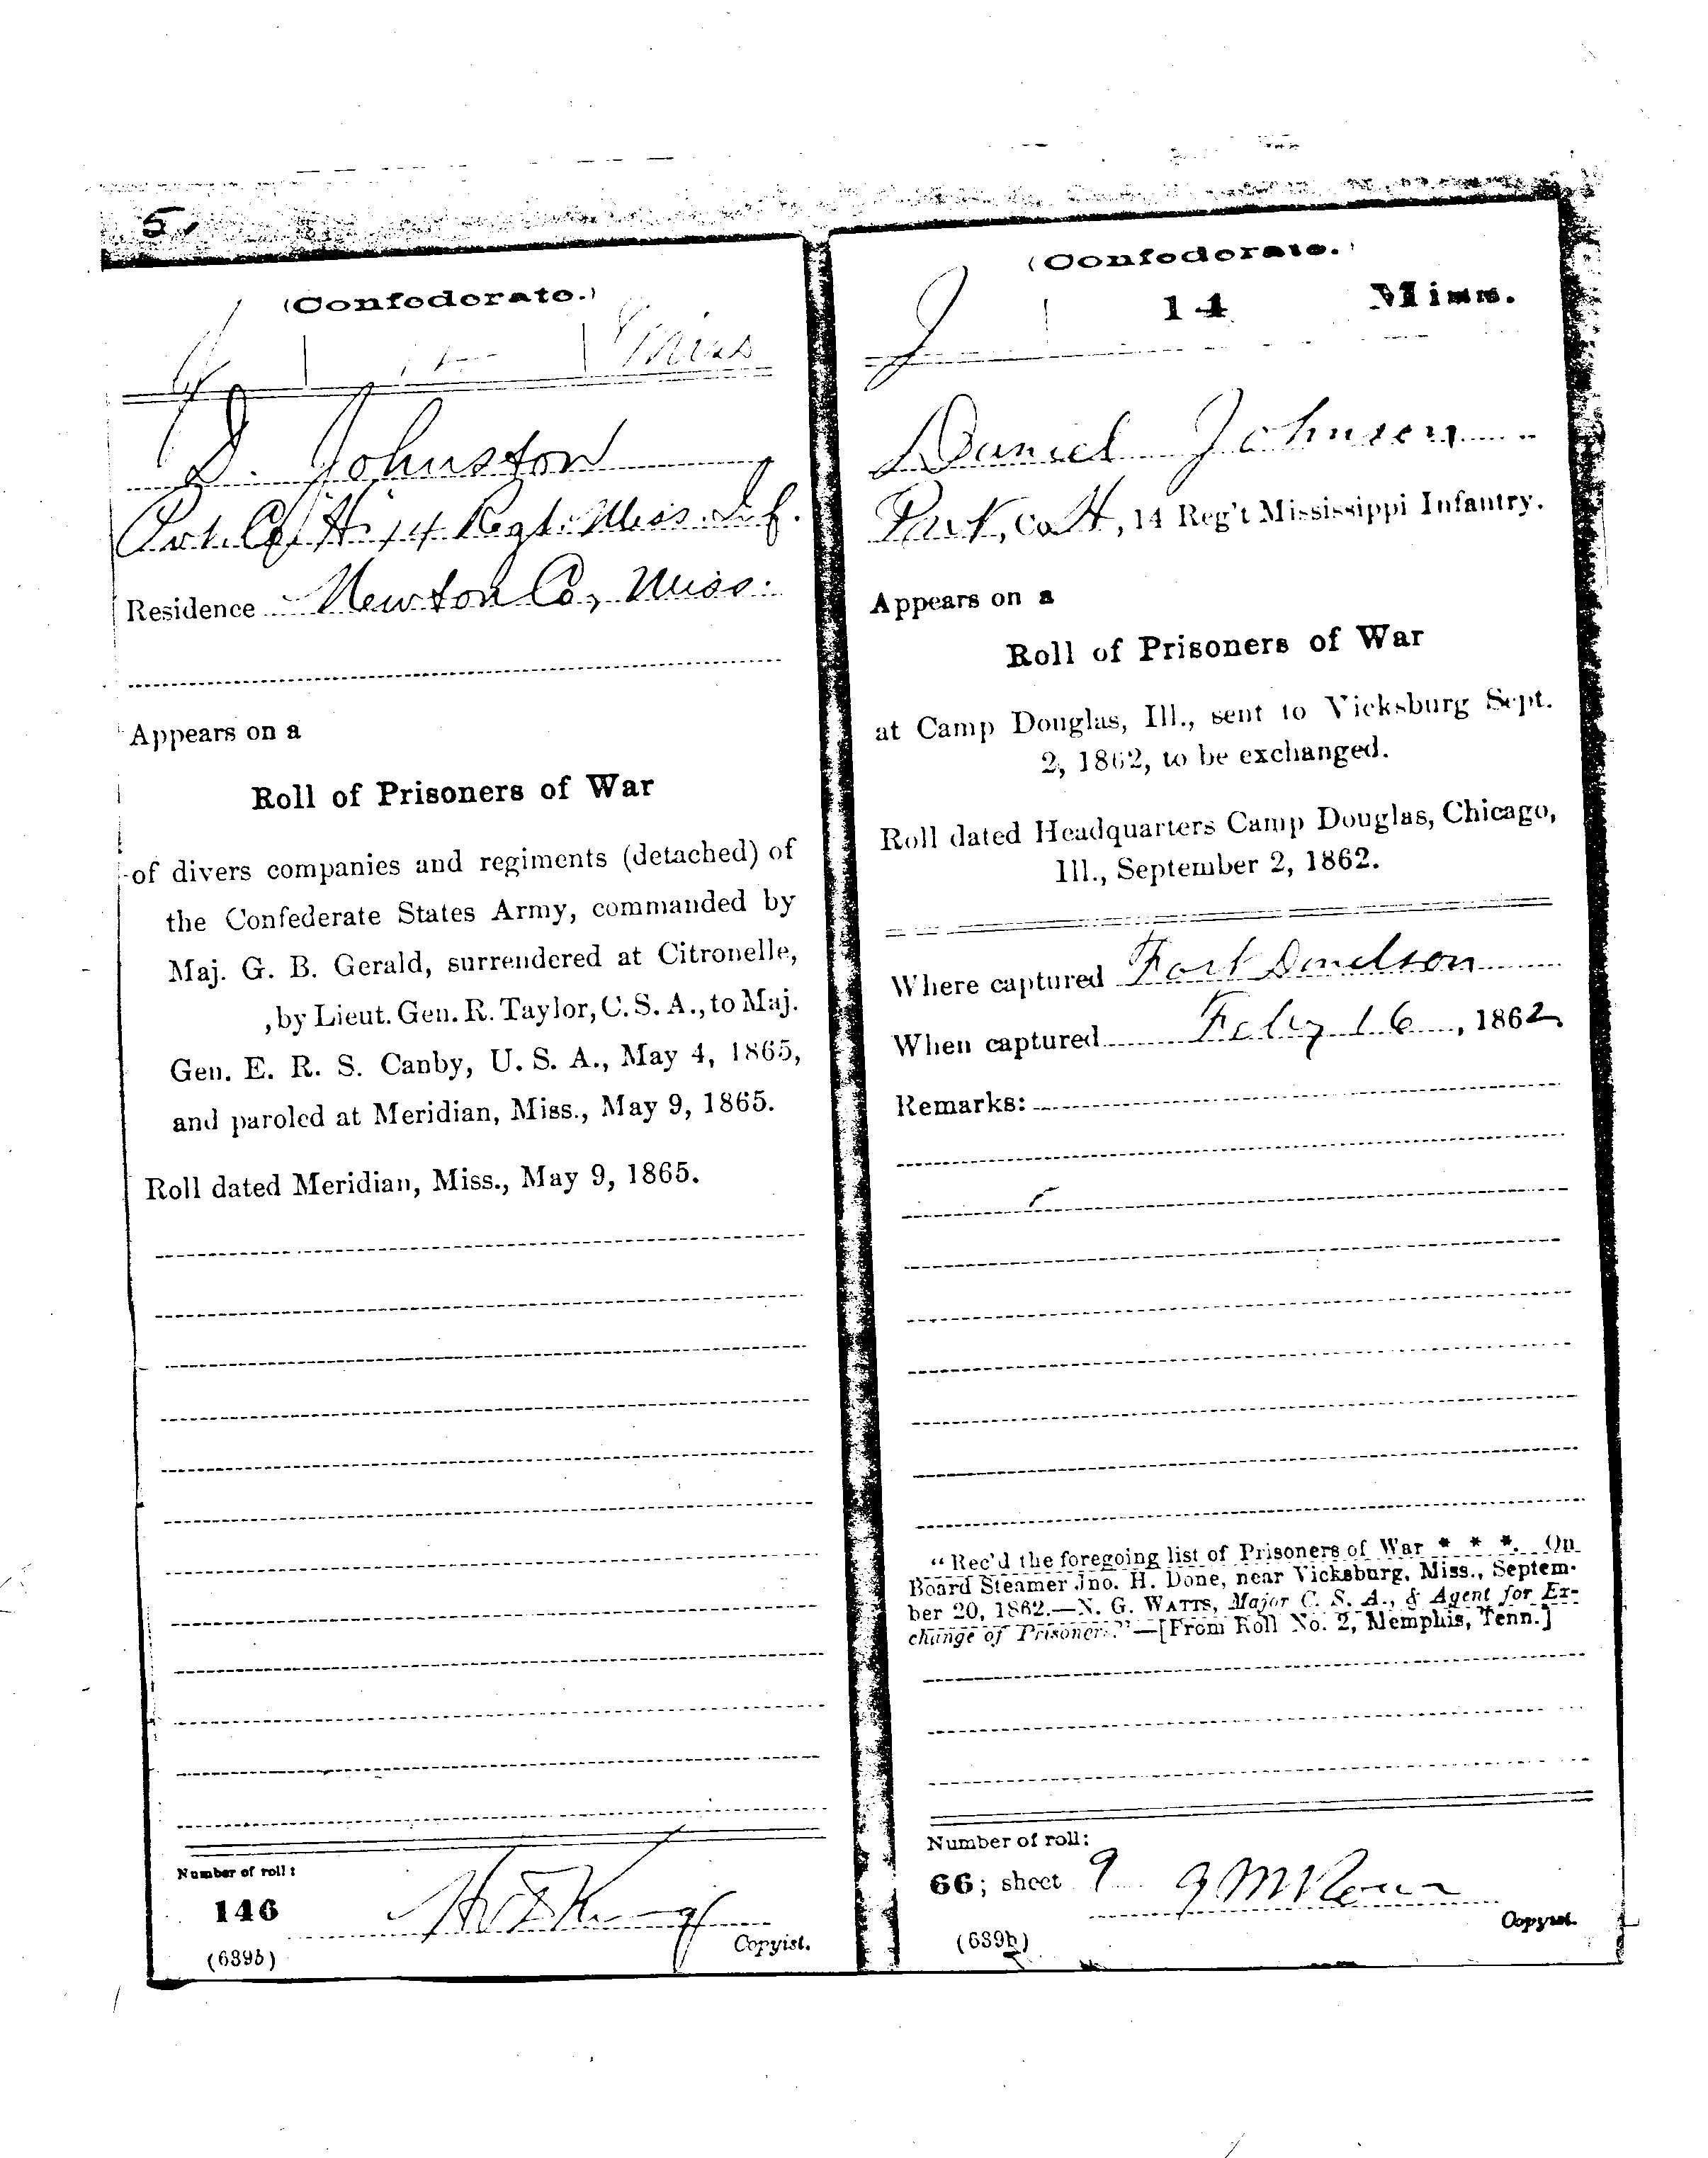 5.
(Confederate.)
J 14 Miss
D. Johnston
Pvt. Co. "H" 14 Regt. Miss. Inf.
Residence Newton Co, Miss.
Appears on a
Roll of Prisoners of War
of divers companies and regiments (detached) of
the Confederate States Army, commanded by
Maj. G. B. Gerald, surrendered at Citronelle,
, by Lieut. Gen. R. Taylor, C. S. A., to Maj.
Gen. E. R. S. Canby, U. S. A., May 4, 1865,
and paroled at Meridian, Miss., May 9, 1865.
Roll dated Meridian, Miss., May 9, 1865.
Number of roll:
146
(639b)
Copyist.
(Confederate.)
J 14 Miss.
Daniel Johnson
Pvt, Co H, 14 Reg't Mississippi Infantry.
Appears on a
Roll of Prisoners of War
at Camp Douglas, Ill., sent to Vicksburg Sept.
2, 1862, to be exchanged.
Roll dated Headquarters Camp Douglas, Chicago,
Ill., September 2, 1862.
Where captured Fort Donelson
When captured Feby 16, 1862
Remarks:
"Rec'd the foregoing list of Prisoners of War * * *. On
Board Steamer Jno. H. Done, near Vicksburg, Miss., Septem-
ber 20, 1862.—N. G. WATTS, Major C. S. A., & Agent for Ex-
change of Prisoners."—[From Roll No. 2, Memphis, Tenn.]
Number of roll:
66; sheet 9
(639b)
Copyist.